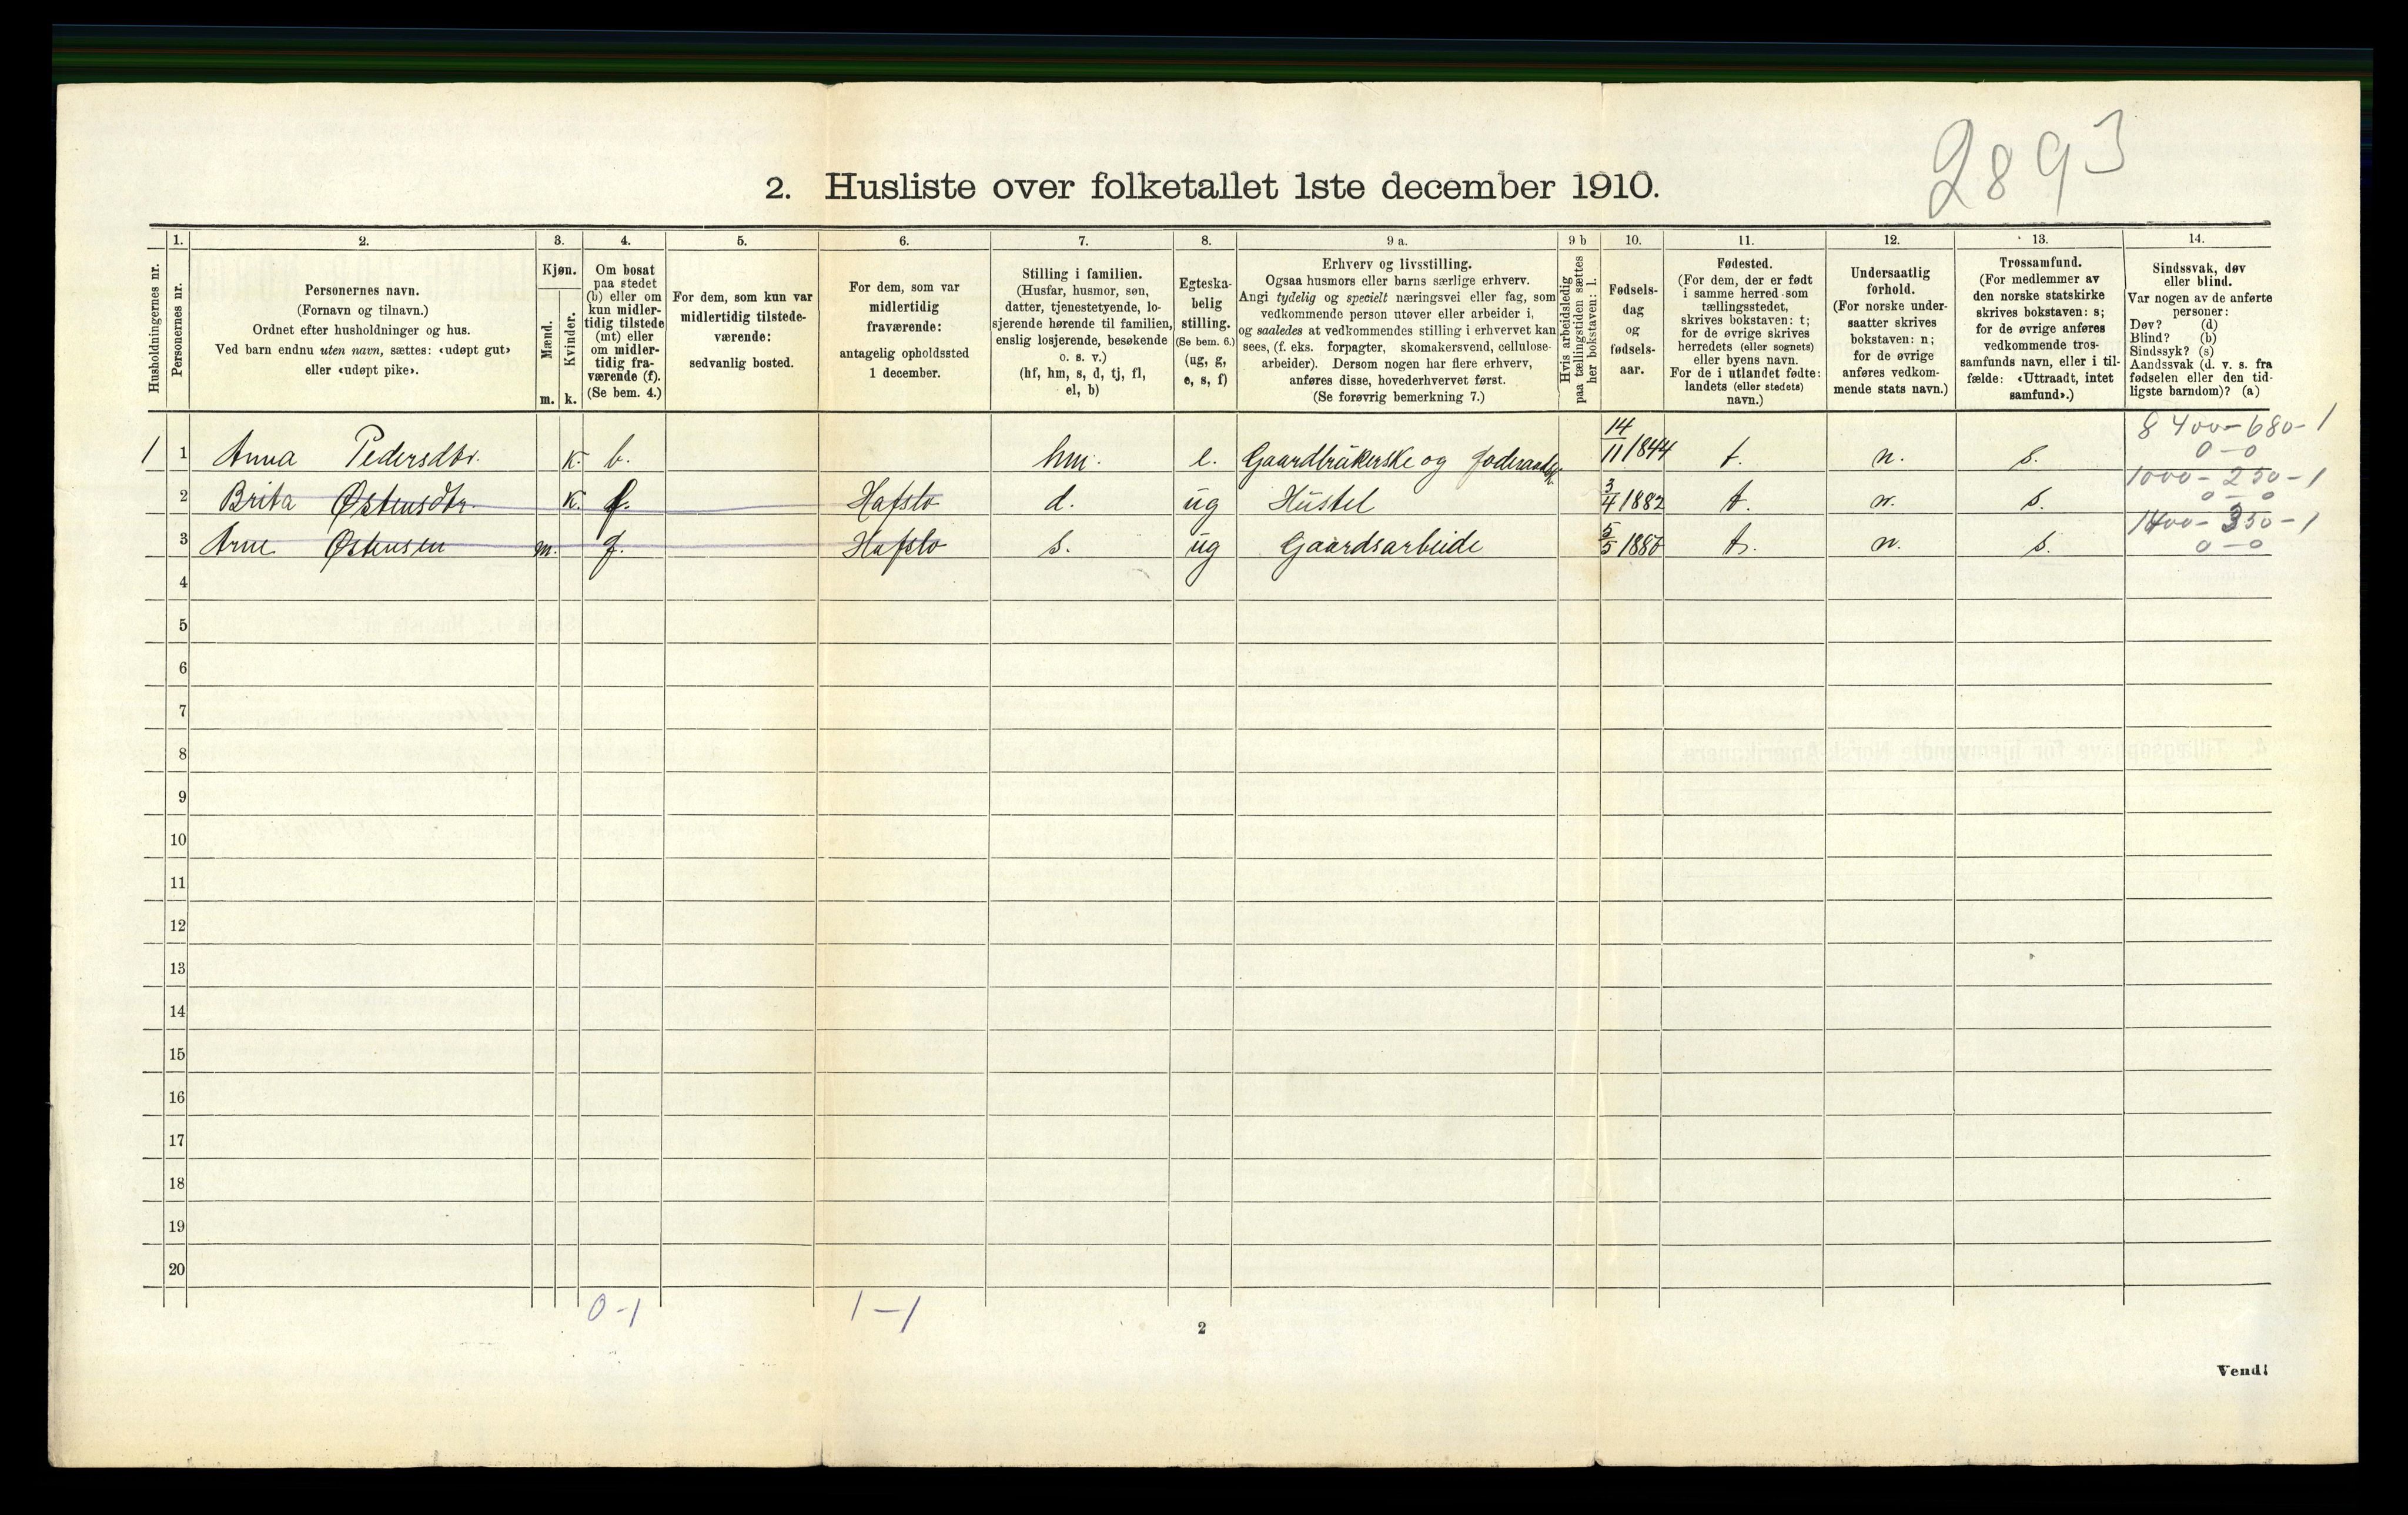 2893
2. Husliste over folketallet 1ste december 1910.
Husholdningernes nr.
1. Personernes nr.
2. Personernes navn.
(Fornavn og tilnavn.)
Ordnet efter husholdninger og hus.
Ved barn endnu uten navn, sættes: «udøpt gut»
eller «udøpt pike».
3. Kjøn.
Mænd. m.
Kvinder. k.
4. Om bosat
paa stedet
(b) eller om
kun midler-
tidig tilstede
(mt) eller
om midler-
tidig fra-
værende (f).
(Se bem. 4.)
5. For dem, som kun var
midlertidig tilstede-
værende:
sedvanlig bosted.
6. For dem, som var
midlertidig
fraværende:
antagelig opholdssted
1 december.
7. Stilling i familien.
(Husfar, husmor, søn,
datter, tjenestetyende, lo-
sjerende hørende til familien,
enslig losjerende, besøkende
o. s. v.)
(hf, hm, s, d, tj, fl,
el, b)
8. Egteska-
belig
stilling.
(Se bem. 6.)
(ug, g,
e, s, f)
9 a. Erhverv og livsstilling.
Ogsaa husmors eller barns særlige erhverv.
Angi tydelig og specielt næringsvei eller fag, som
vedkommende person utøver eller arbeider i,
og saaledes at vedkommendes stilling i erhvervet kan
sees, (f. eks. forpagter, skomakersvend, cellulose-
arbeider). Dersom nogen har flere erhverv,
anføres disse, hovederhvervet først.
(Se forøvrig bemerkning 7.)
9 b Hvis arbeidsledig
paa tællingstiden sættes
her bokstaven: l.
10. Fødsels-
dag
og
fødsels-
aar.
11. Fødested.
(For dem, der er født
i samme herred som
tællingsstedet,
skrives bokstaven: t;
for de øvrige skrives
herredets (eller sognets)
eller byens navn.
For de i utlandet fødte:
landets (eller stedets)
navn.)
12. Undersaatlig
forhold.
(For norske under-
saatter skrives
bokstaven: n;
for de øvrige
anføres vedkom-
mende stats navn.)
13. Trossamfund.
(For medlemmer av
den norske statskirke
skrives bokstaven: s;
for de øvrige anføres
vedkommende tros-
samfunds navn, eller i til-
fælde: «Uttraadt, intet
samfund».)
14. Sindssvak, døv
eller blind.
Var nogen av de anførte
personer:
Døv? (d)
Blind? (b)
Sindssyk? (s)
Aandssvak (d. v. s. fra
fødselen eller den tid-
ligste barndom)? (a)
1 1 Anna Pedersdtr. k. b. hm. e. Gaardbrukerske og 14/11 1844 t. n. s. 8400-680-1
0-0
2 Brita Østensdtr. k. f. Hafslo d. ug Hustel 3/4 1882 t. n. s. 1000-250-1
0-0
3 Arne Østensen m. f. Hafslo s. ug Gaardsarbeide t. n. s.
0-0
4
5
6
7
8
9
10
11
12
13
14
15
16
17
18
19
20
0-1 1-1
2
Vend!